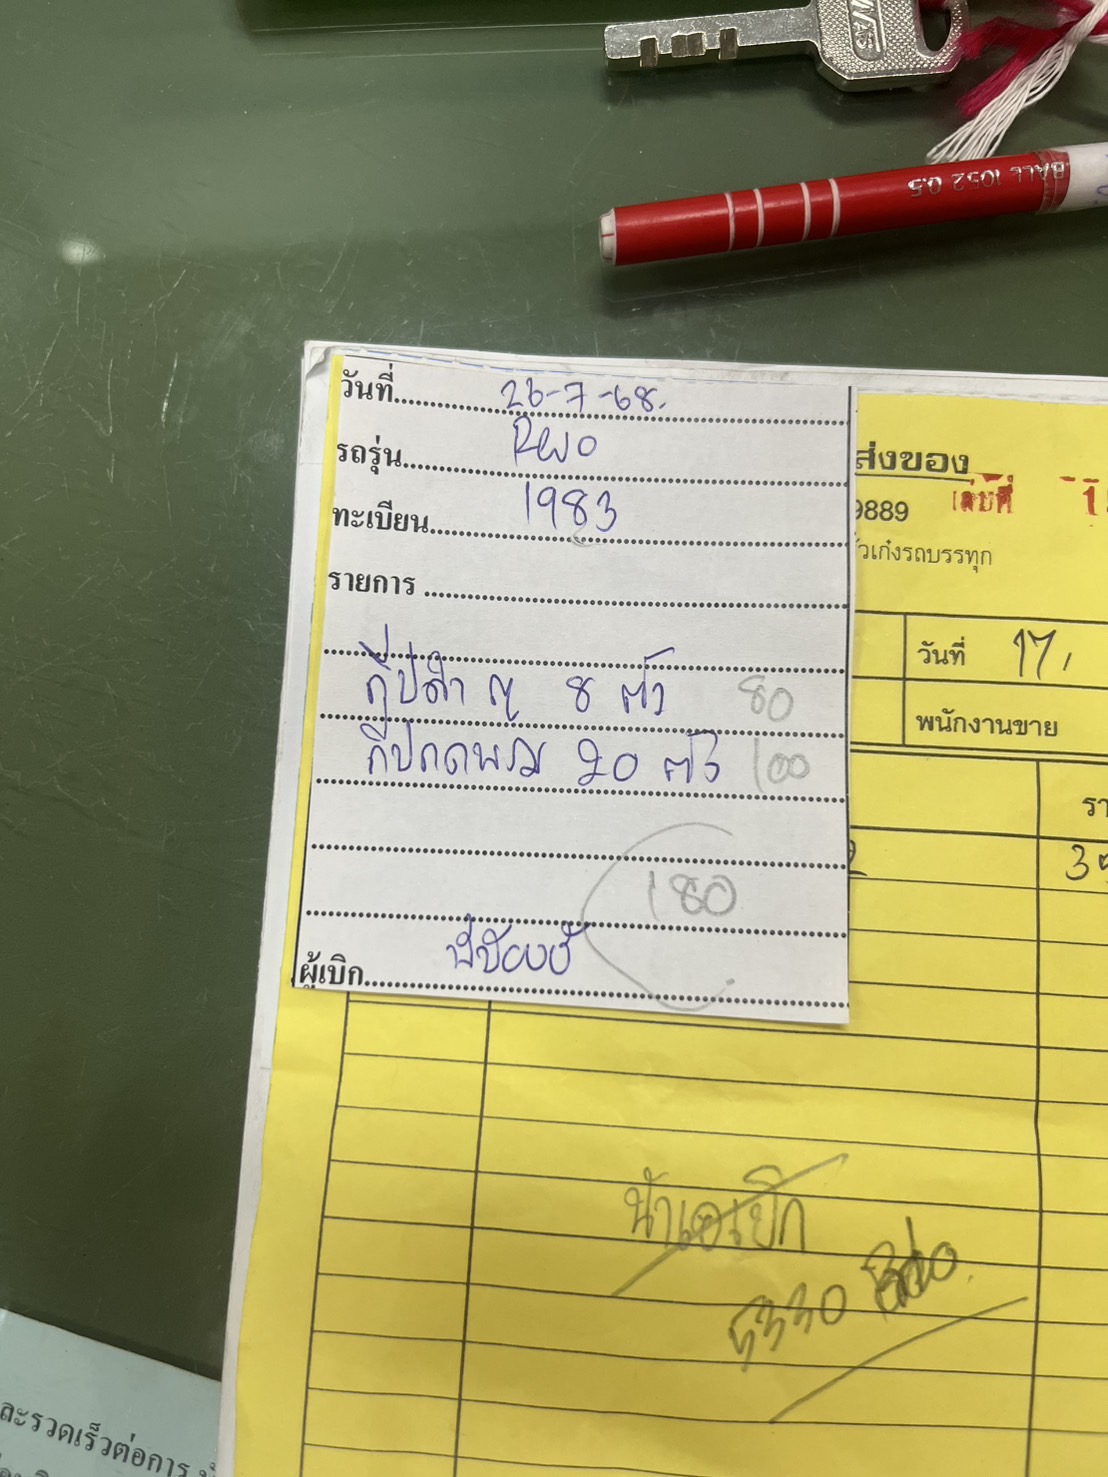 BALL 1052 0.5
วันที่ 26-7-68.
รถรุ่น Revo
ทะเบียน 1983
รายการ
กิ๊ปดำ ญ 8 ตัว 80
กิ๊ปกดพรม 20 ตัว 100
180
ผู้เบิก
ส่งของ
9889 เลขที่ 1
ัวเก๋งรถบรรทุก
วันที่ 17,
พนักงานขาย
รา
น้าเอเบิก
5330
ละรวดเร็วต่อการ